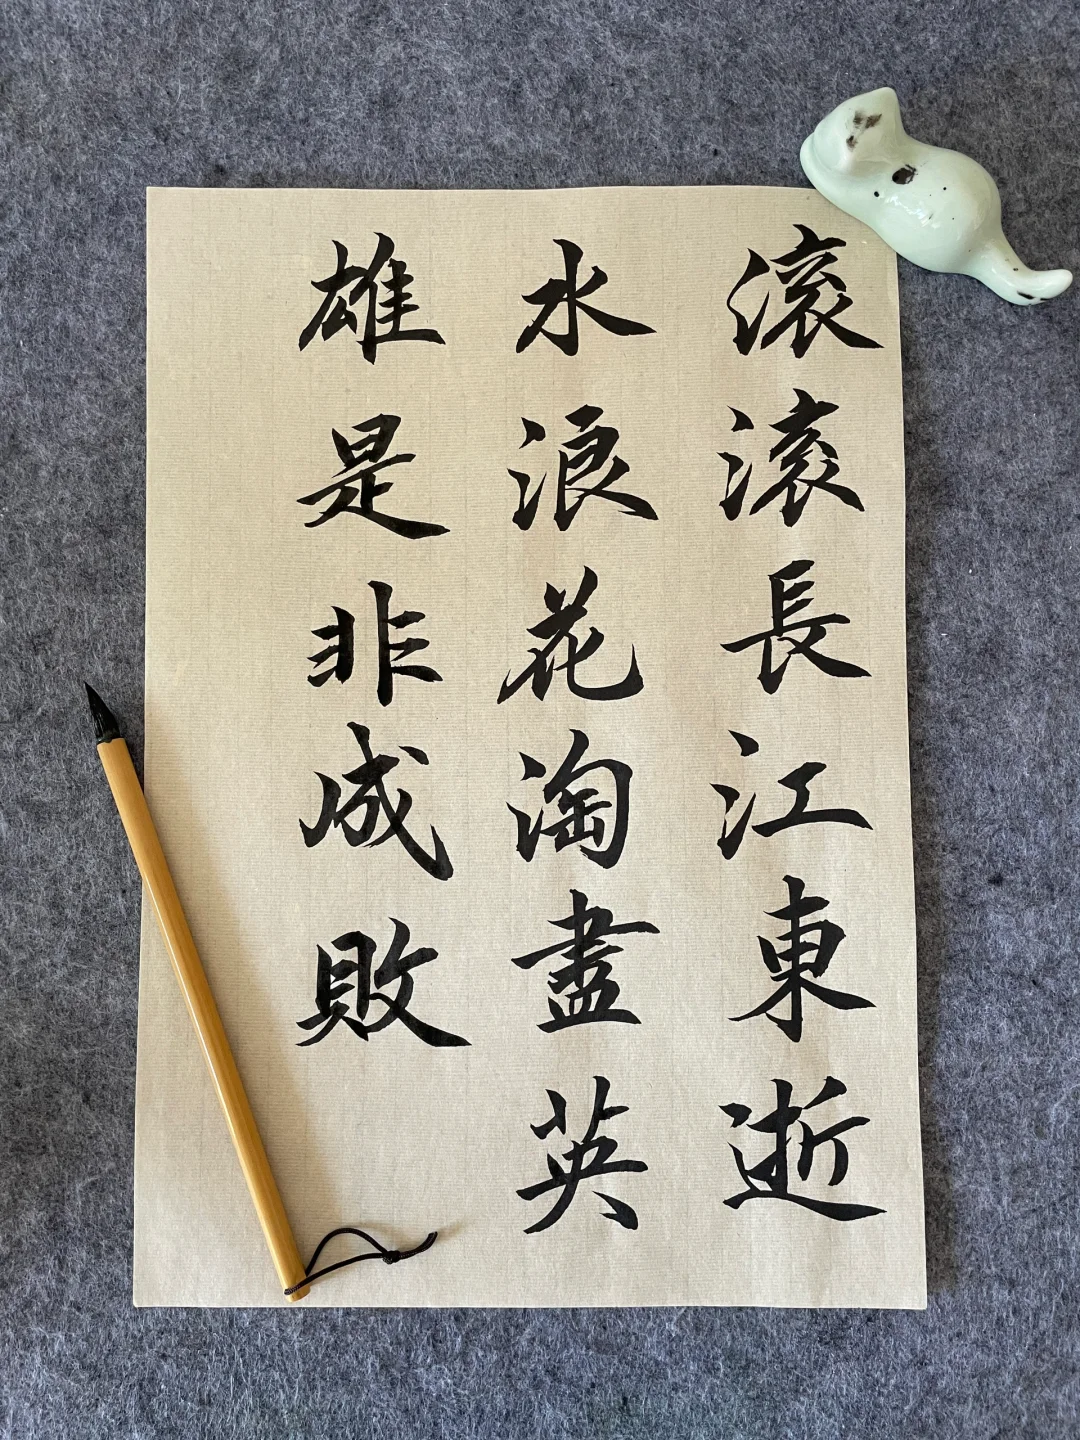 滾滾長江東逝
水浪花淘盡英
雄是非成敗